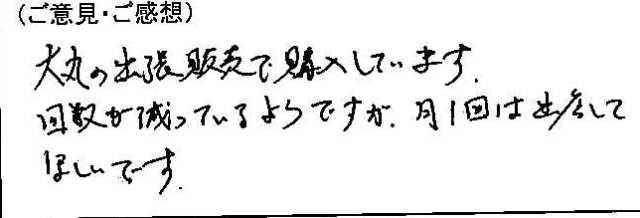 (ご意見・ご感想)
大丸の出張販売で購入しています.
回数が減っているようですが、月1回は出店して
ほしいです.